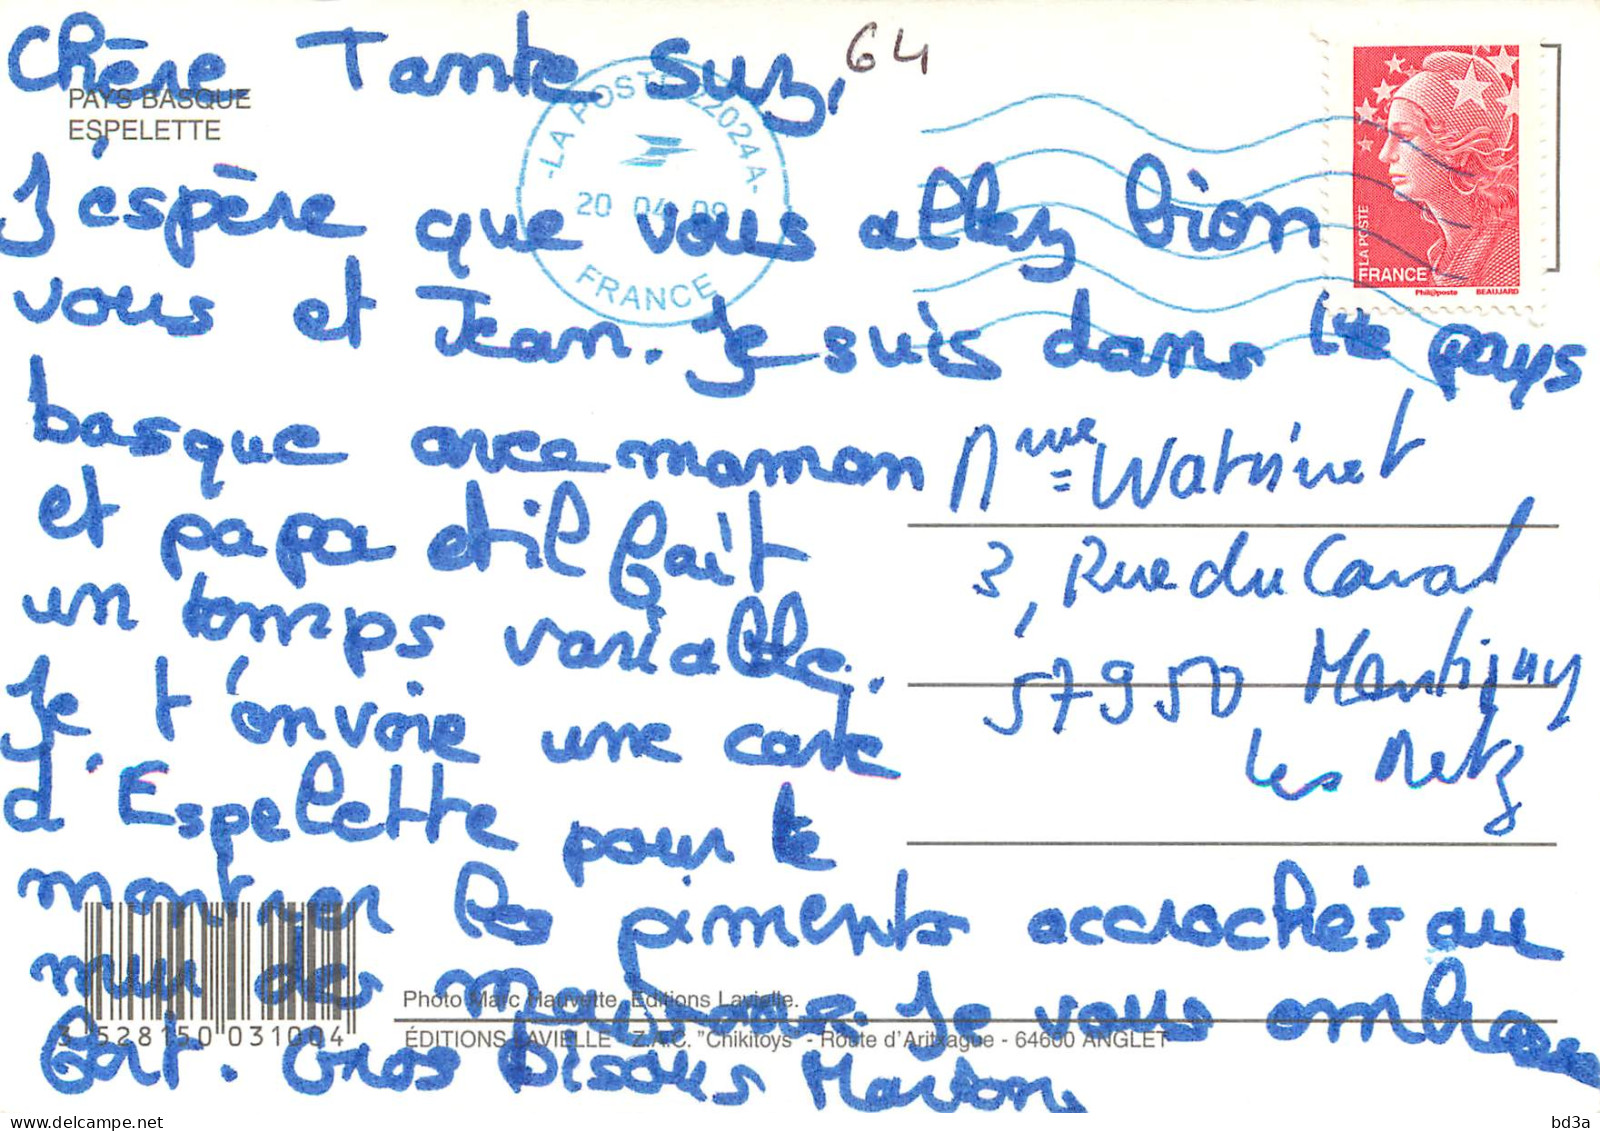 Chère Tante Suz, 64
PAYS BASQUE
ESPELETTE
LA POSTE 22024A
20 04 09
FRANCE
LA POSTE
FRANCE
Phil@poste BEAUJARD
J'éspère que vous allez bion
vous et Jean. Je suis dans le pays
basque avec maman
et papa et il fait
un tomps variable.
Je t'onvoie une carte
d'Espelette pour te
montrer les piments accrochés au
mur des maisons. Je vous ombrasse
fort. Gros Bisous Marion
Mme Watrinet
3, Rue du Canal
57950 Montigny
les Metz
Photo Marc Hauvette. Editions Lavielle.
ÉDITIONS LAVIELLE - Z.A.C. "Chikitoys" - Route d'Aritxague - 64600 ANGLET
3 528150 031004
www.delcampe.net
bd3a